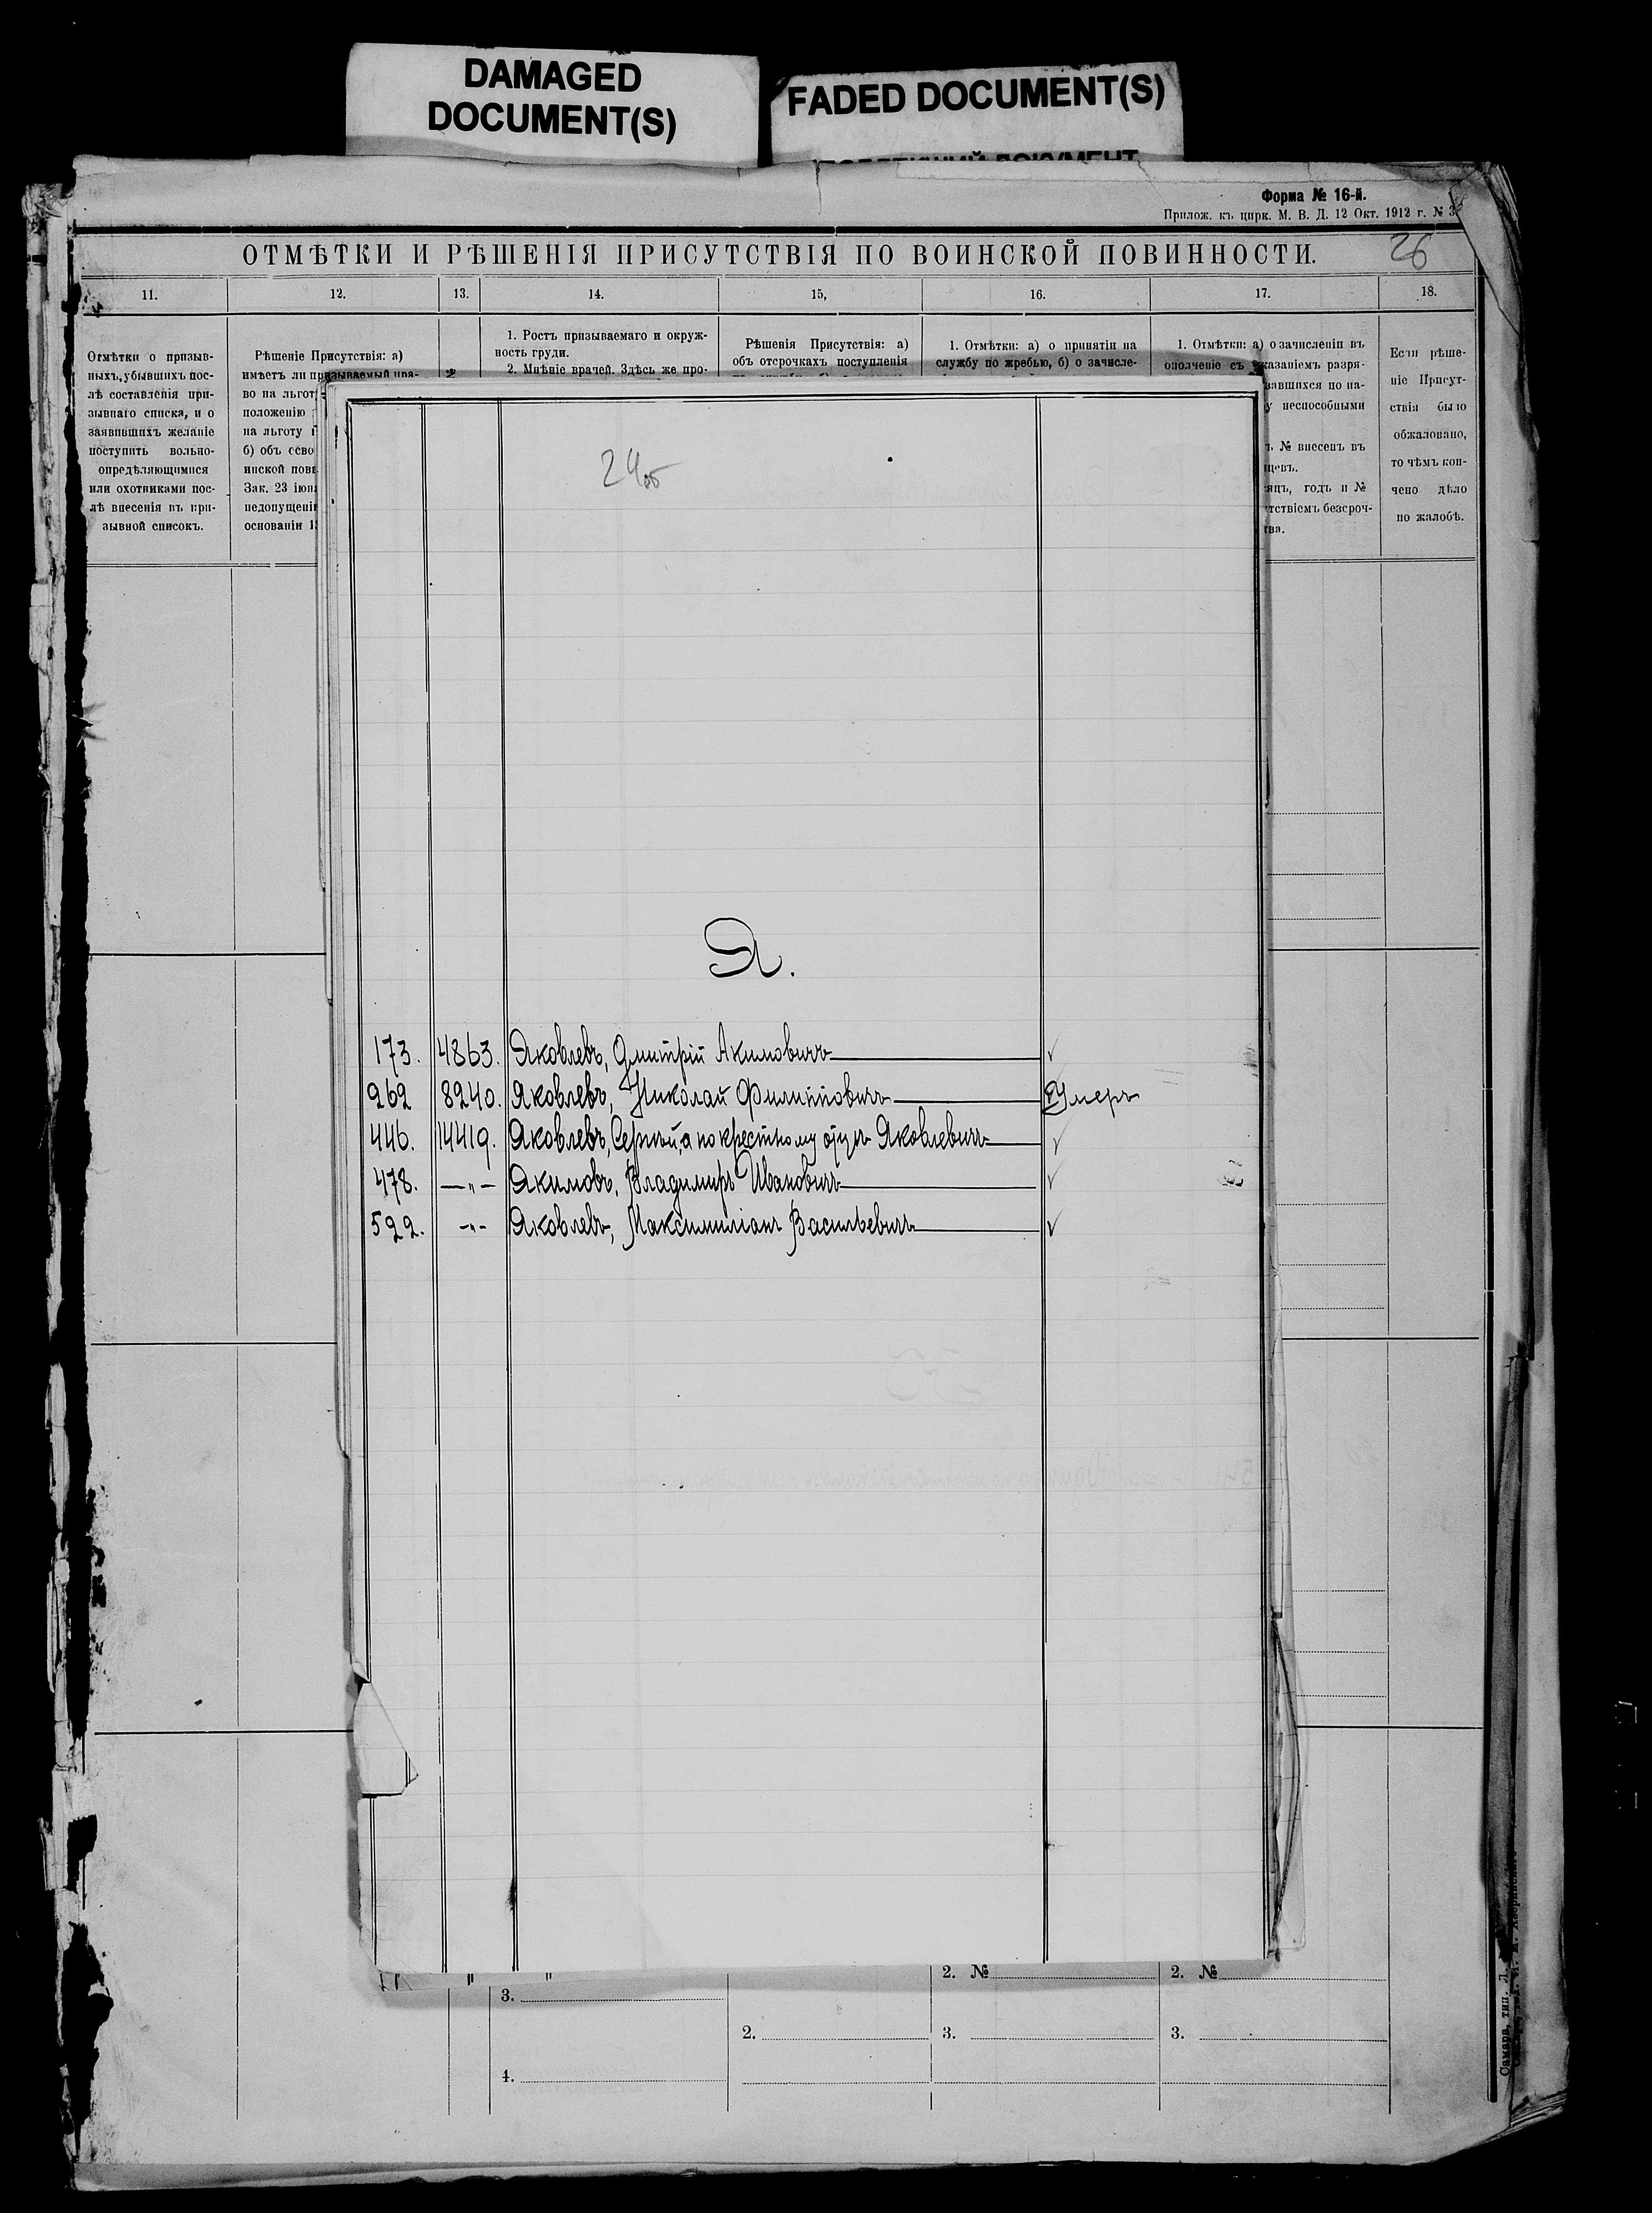 DAMAGED
DOCUMENT(S)
FADED DOCUMENT(S)
Форма № 16-й.
Прилож. къ цирк. М. В. Д. 12 Окт. 1912 г. № 3
ОТМѢТКИ И РѢШЕНІЯ ПРИСУТСТВІЯ ПО ВОИНСКОЙ ПОВИННОСТИ.
26
11.
12.
13.
14.
15,
16.
17.
18.
Отмѣтки о призыв-
ныхъ, убывшихъ пос-
лѣ составленія при-
зывнаго списка, и о
заявившихъ желаніе
поступить вольно-
опредѣляющимися
или охотниками пос-
лѣ внесенія въ при-
зывной списокъ.
Рѣшеніе Присутствія: а)
имѣетъ ли призываемый пра-
во на льгот
положенію
на льготу
б) объ осво
инской пови
Зак. 23 іюн
недопущені
основаніи 1
№
1. Ростъ призываемаго и окруж-
ность груди.
2. Мнѣніе врачей. Здѣсь же про-
Рѣшенія Присутствія: а)
объ отсрочкахъ поступленія
1. Отмѣтки: а) о принятіи на
службу по жребью, б) о зачисле-
1. Отмѣтки: а) о зачисленіи въ
ополченіе съ указаніемъ разря-
завшихся по на-
у неспособными
ъ № внесенъ въ
щевъ.
яцъ, годъ и №
тствіемъ безсроч-
тва.
Если рѣше-
ніе Присут-
ствія было
обжаловано,
то чѣмъ кон-
чено дѣло
по жалобѣ.
24об
Я.
173. 4863. Яковлевъ, Дмитрій Акимовичъ
262 8240. Яковлевъ, Николай Филипповичъ Умеръ
446. 14419. Яковлевъ, Сергѣй, а по крестному отцу Яковлевичъ
478. —"— Якимовъ, Владимиръ Ивановичъ
522. -"- Яковлевъ, Максимиліанъ Васильевичъ
3.
4.
2.
2. №
3.
2. №
3.
Самара, тип. Л.